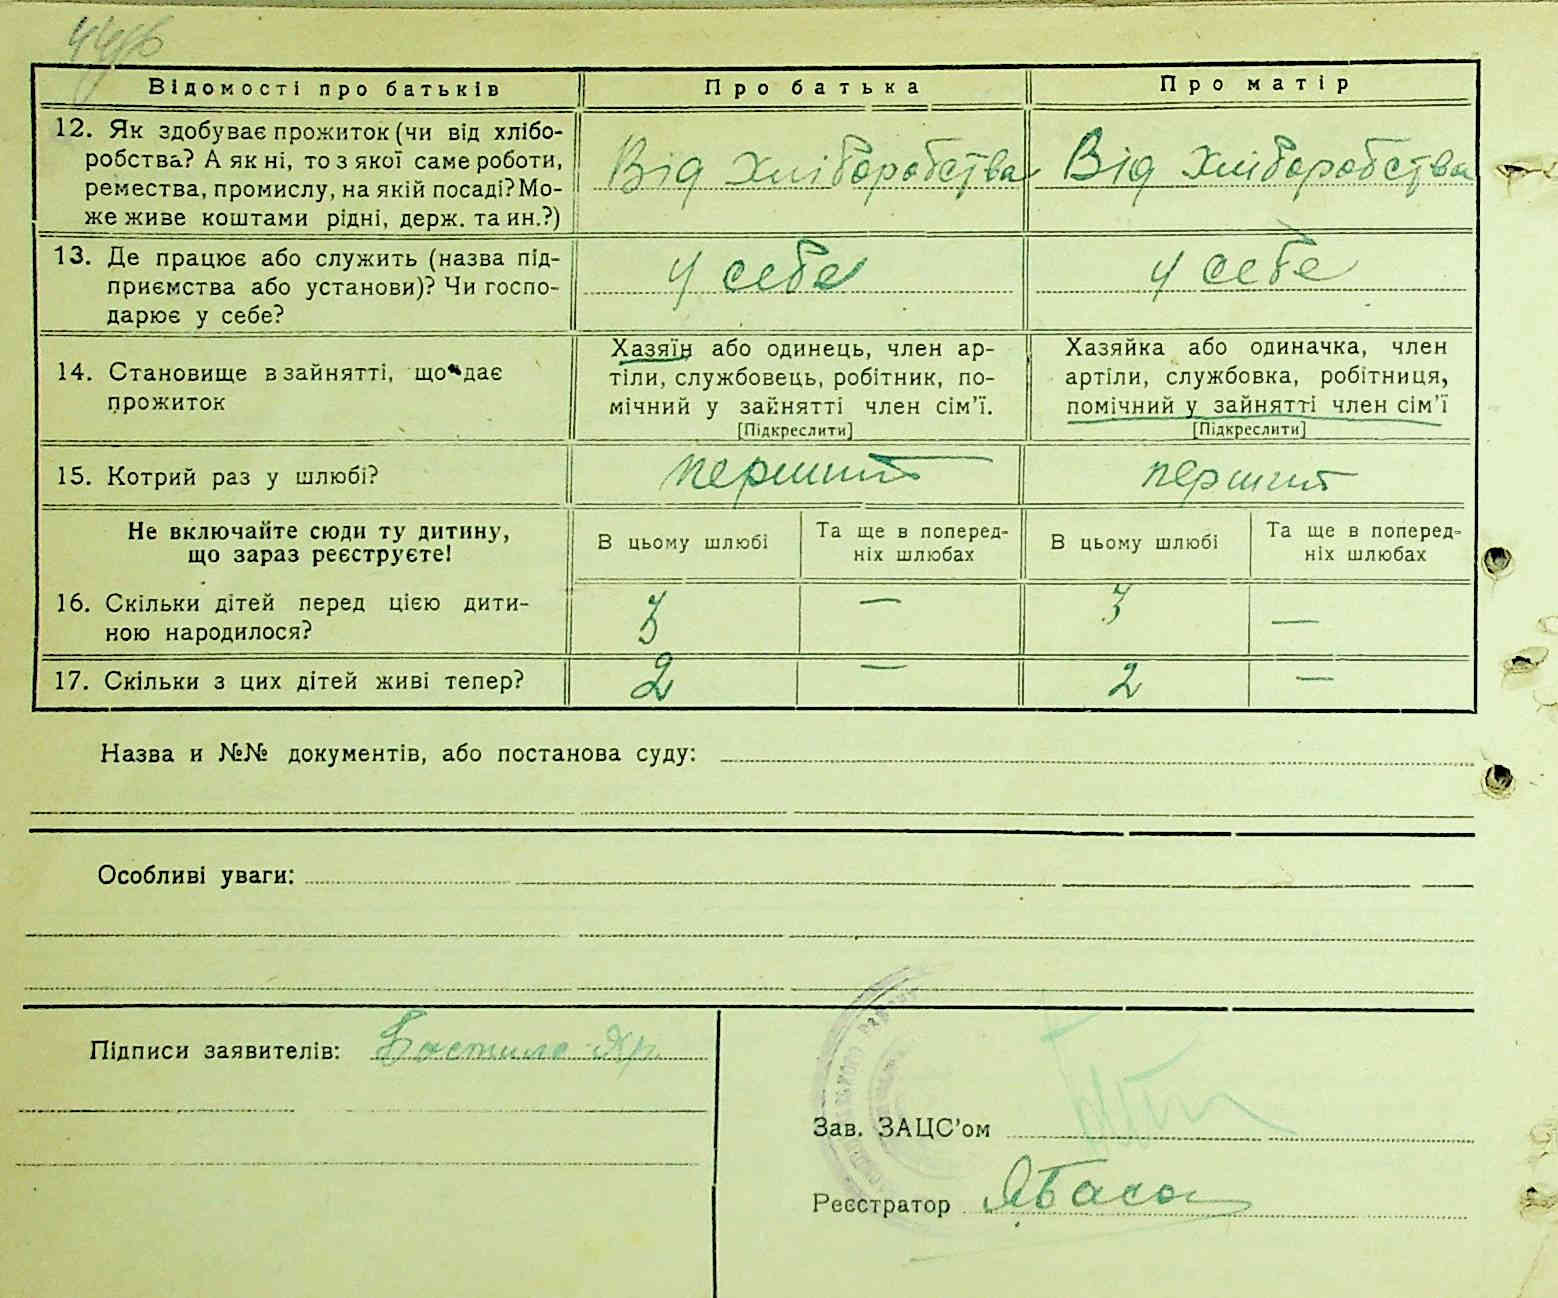 Відомості про батьків
Про батька
Про матір
12. Як здобуває прожиток (чи від хлібо-
робства? А як ні, то з якої саме роботи,
ремества, промислу, на якій посаді? Мо-
же живе коштами рідні, держ. та ин.?)
Від хліборобства
Від хліборобства
13. Де працює або служить (назва під-
приємства або установи)? Чи госпо-
дарює у себе?
у себе
у себе
14. Становище в зайнятті, що дає
прожиток
Хазяїн або одинець, член ар-
тіли, службовець, робітник, по-
мічний у зайнятті член сім'ї.
[Підкреслити]
Хазяйка або одиначка, член
артіли, службовка, робітниця,
помічний у зайнятті член сім'ї
[Підкреслити]
15. Котрий раз у шлюбі?
перший
перший
Не включайте сюди ту дитину,
що зараз реєструєте!
В цьому шлюбі
Та ще в поперед-
ніх шлюбах
В цьому шлюбі
Та ще в поперед-
ніх шлюбах
16. Скільки дітей перед цією дити-
ною народилося?
3
—
3
—
17. Скільки з цих дітей живі тепер?
2
—
2
—
Назва и №№ документів, або постанова суду:
Особливі уваги:
Підписи заявителів:
Зав. ЗАЦС'ом
Реєстратор